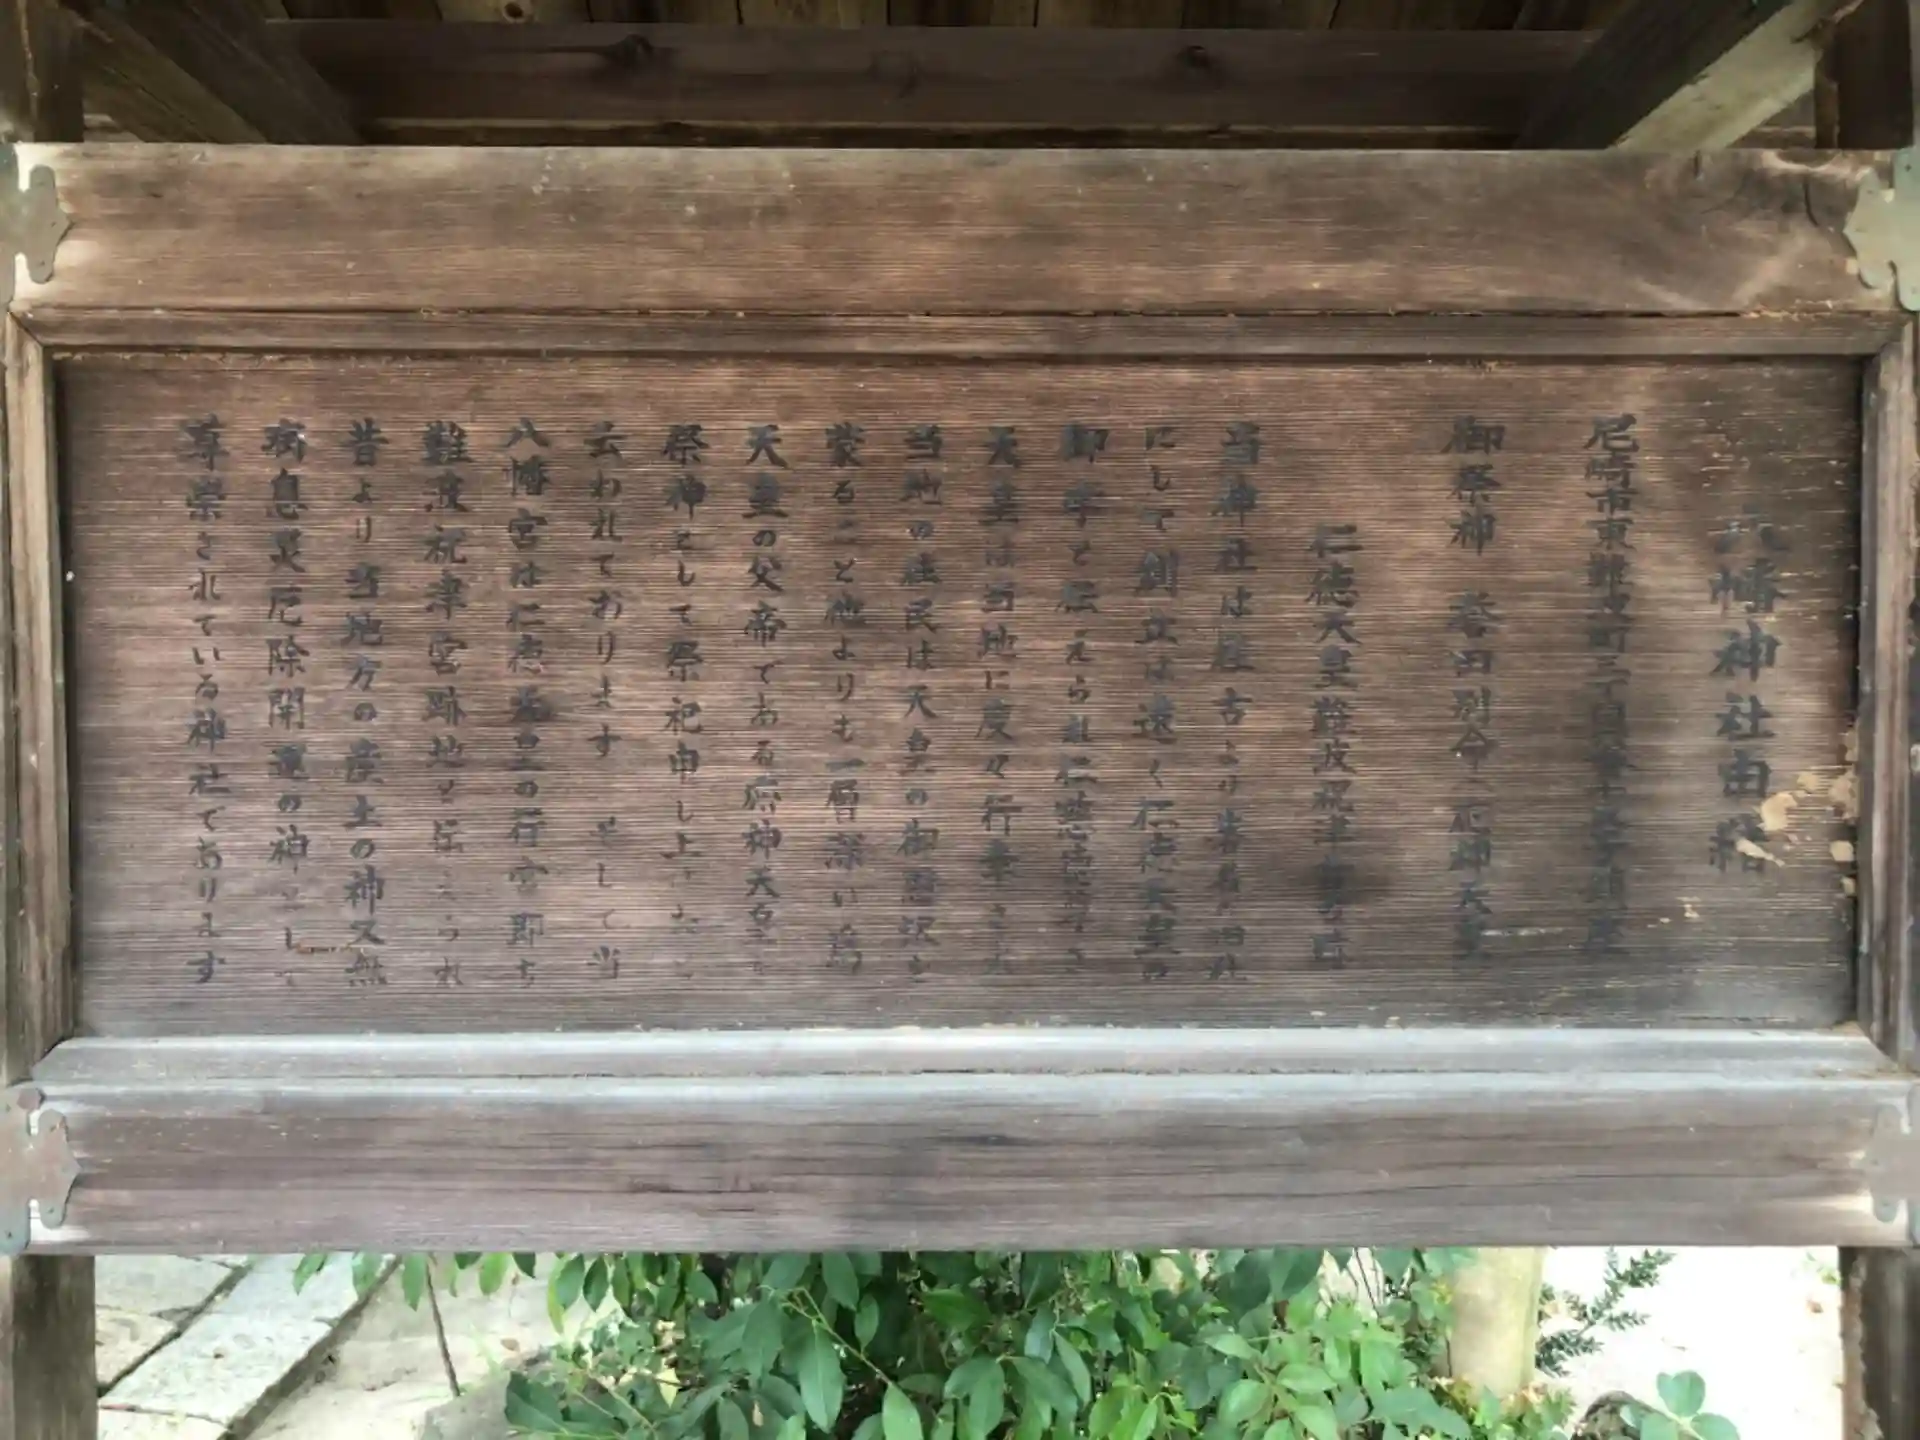 八幡神社由緒
尼崎市東難波町三丁目
御祭神 誉田別命 応神天皇
仁徳天皇難波祝津宮
当神社は往古より
にして創立は遠く仁徳天皇の
御宇と伝えられ仁慈
天皇は当地に度々行幸され
当地の住民は天皇の御恩沢を
蒙ること他よりも一層深い為
天皇の父帝である応神天皇を
祭神として祭祀申し上
云われております そして当
八幡宮は仁徳天皇の行宮即ち
難波祝津宮跡地と伝えられ
昔より当地方の産土の神又無
病息災厄除開運の神として
尊崇されている神社であります